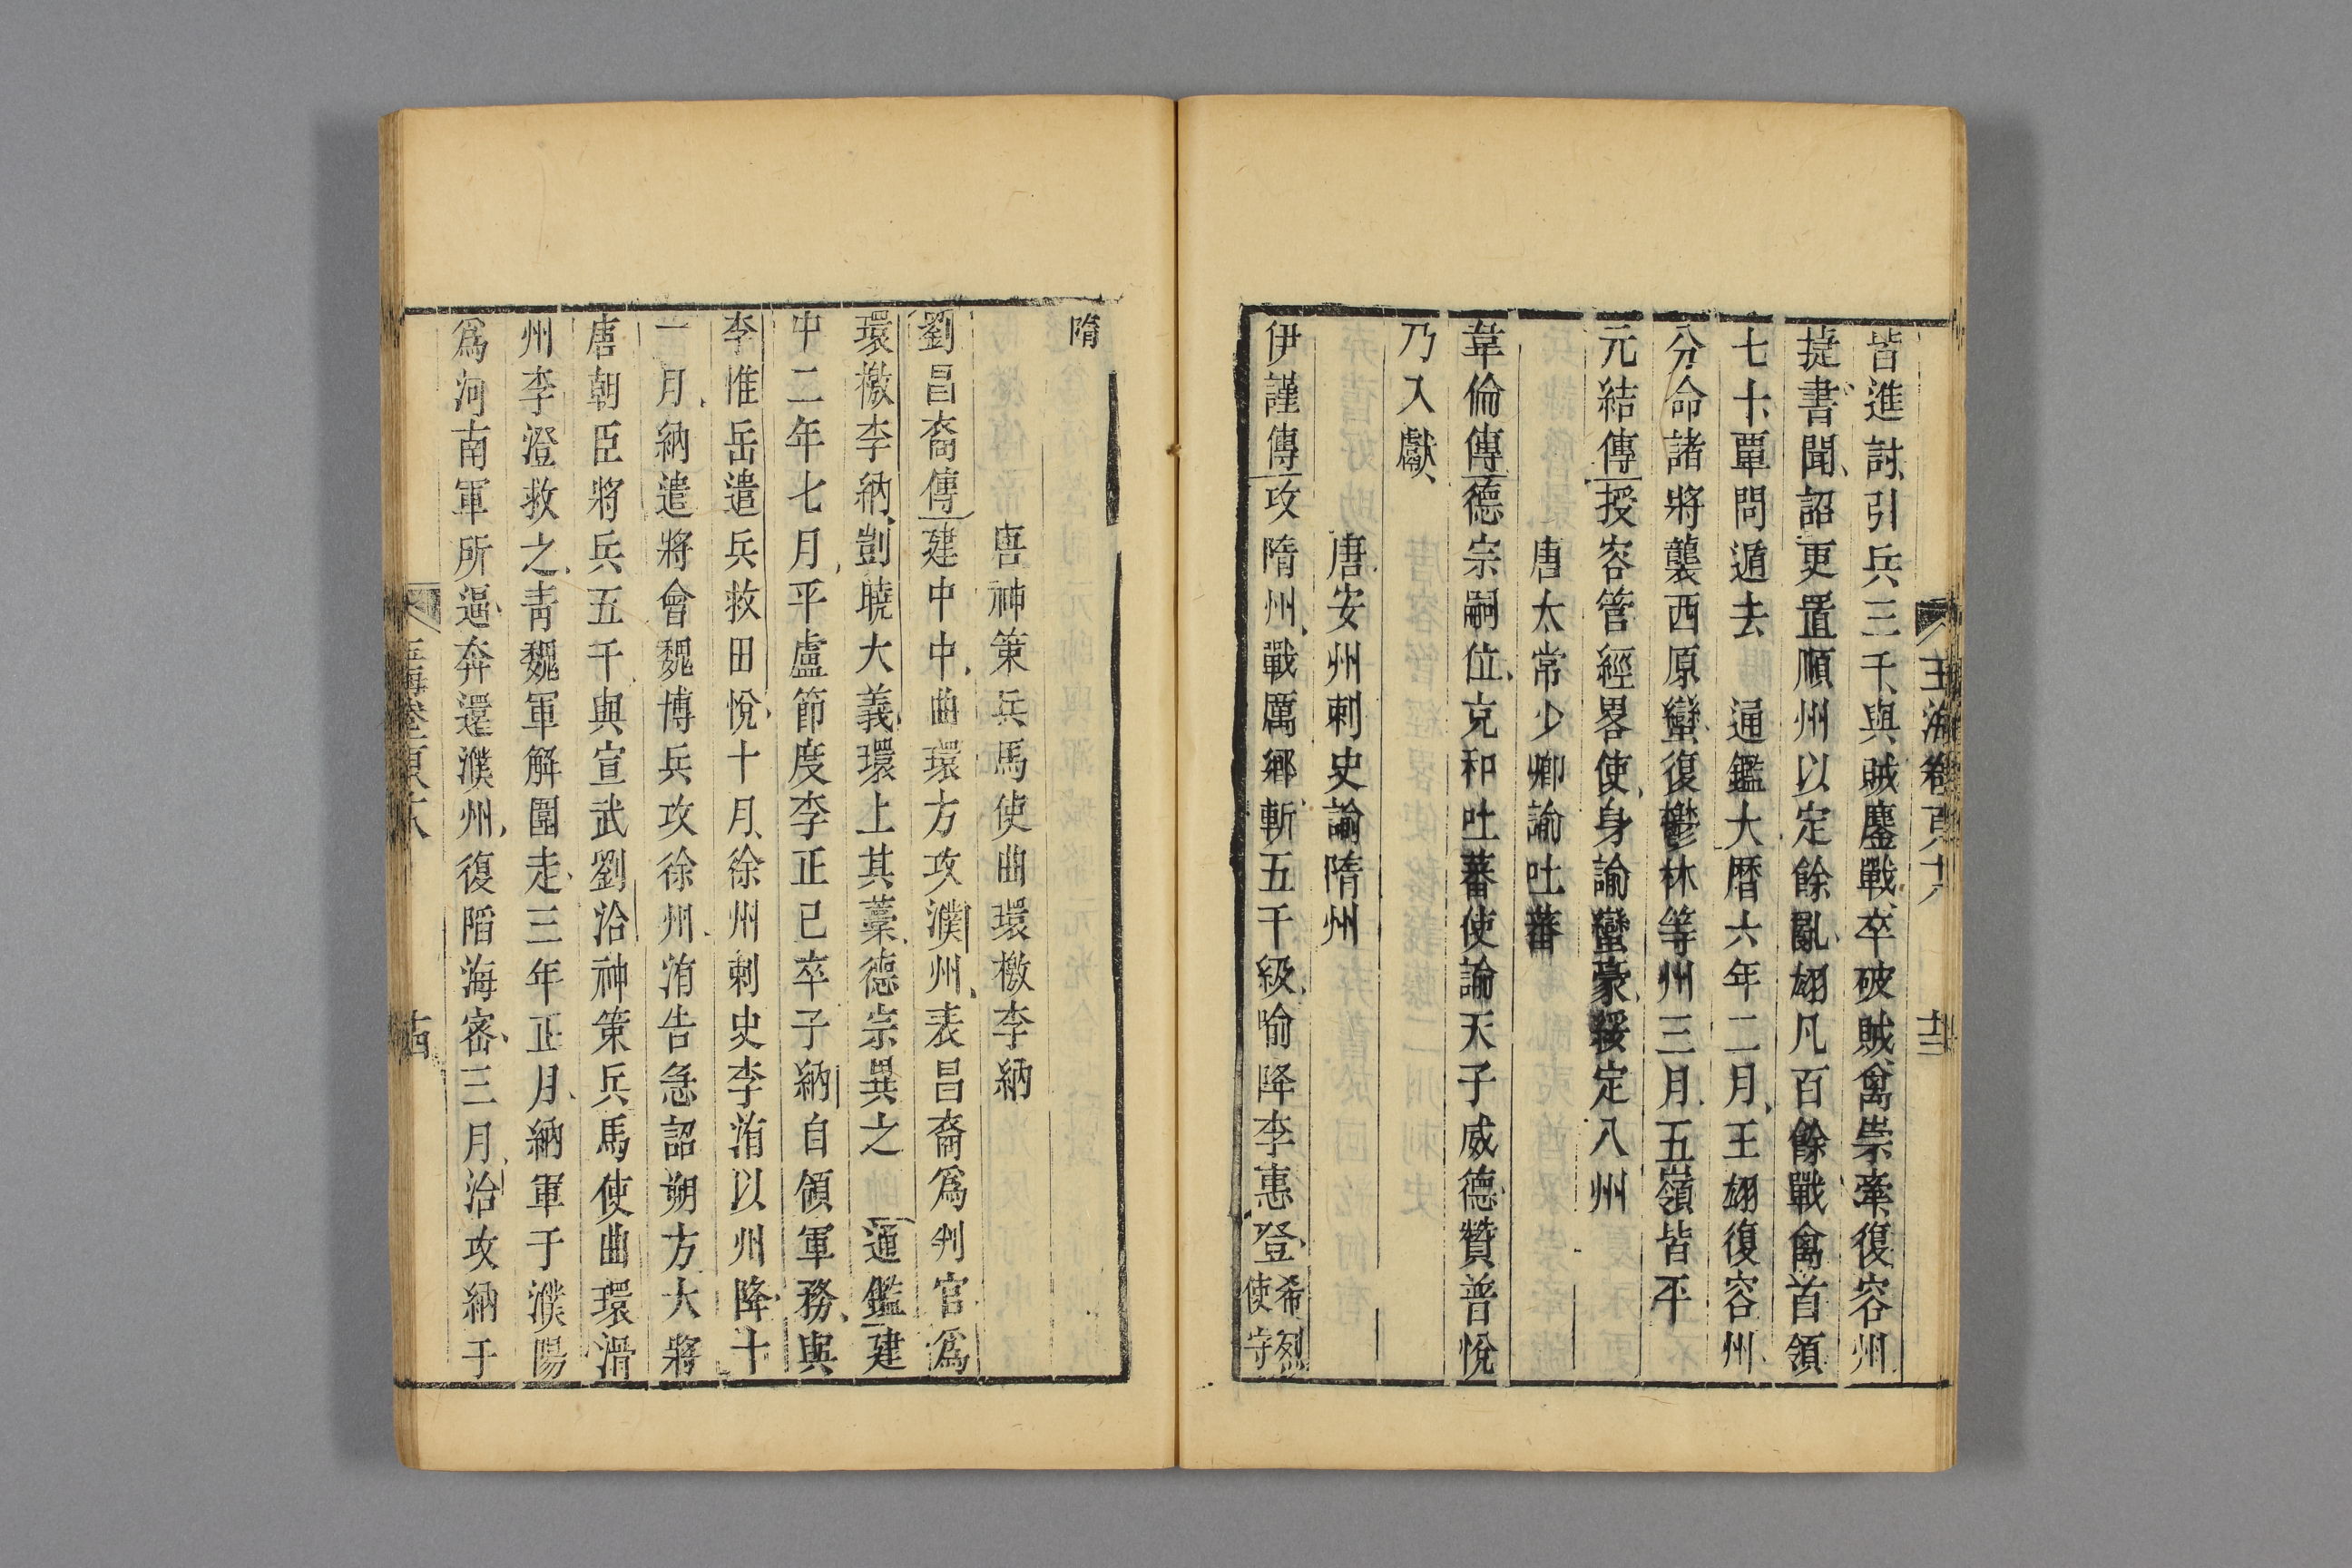 玉海卷百十八 十三
皆進討引兵三千與賊鏖戰卒破賊禽崇牽復容州
捷書聞詔更置順州以定餘亂翃凡百餘戰禽首領
七十覃問遁去 通鑑大曆六年二月王翃復容州
分命諸將襲西原蠻復鬱林等州三月五嶺皆平
元結傳授容管經畧使身諭蠻豪綏定八州
唐太常少卿諭吐蕃
韋倫傳德宗嗣位克和吐蕃使諭天子威德贊普悅
乃入獻
唐安州刺史諭隋州
伊謹傳攻隋州戰厲鄉斬五千級喻降李惠登希烈使守
隋
唐神策兵馬使曲環檄李納
劉昌裔傳建中中曲環方攻濮州表昌裔爲判官爲
環檄李納剴曉大義環上其藁德宗異之 通鑑建
中二年七月平盧節度李正已卒子納自領軍務與
李惟岳遣兵救田悅十月徐州刺史李洧以州降十
一月納遣將會魏博兵攻徐州洧告急詔朔方大將
唐朝臣將兵五千與宣武劉洽神策兵馬使曲環滑
州李澄救之青魏軍解圍走三年正月納軍于濮陽
爲河南軍所逼奔還濮州復䧟海密三月洽攻納于
玉海卷百十八 十四